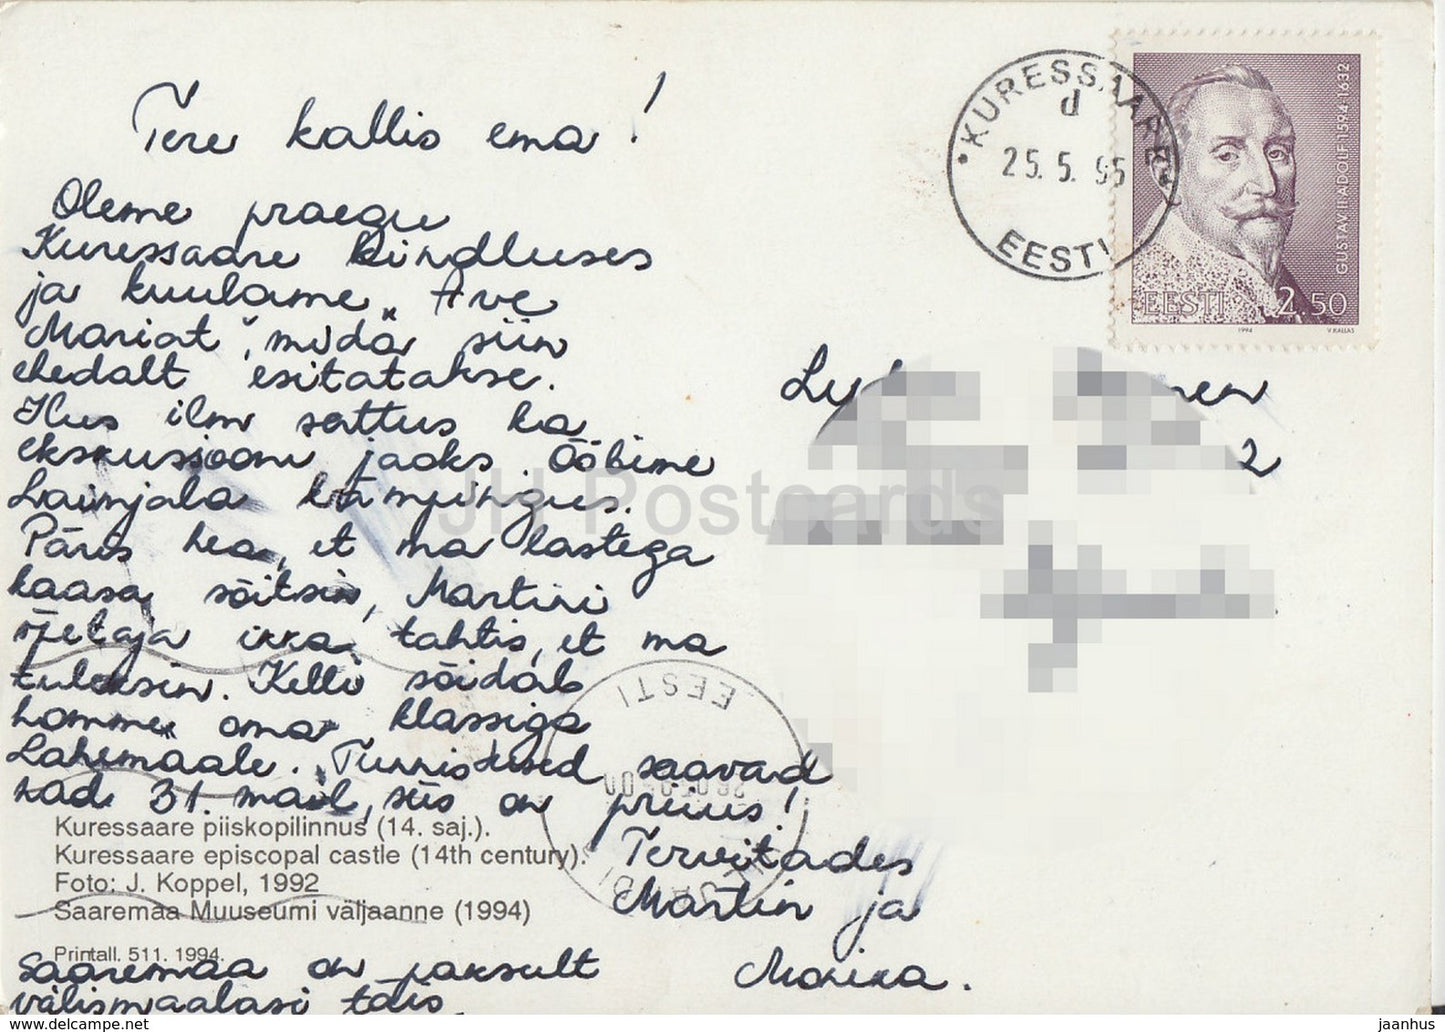 Tere kallis ema!
Oleme praegu
Kuressaare kindluses
ja kuulame „Ave
Mariat", mida siin
ehedalt esitatakse.
Ilus ilm sattus ka
ekskursiooni jaoks. Ööbime
Laimjala kämpingus.
Päris hea, et ma lastega
kaasa sõitsin, Martini
õpetaja ikka tahtis, et ma
tuleksin. Kelli sõidab
homme oma klassiga
Lahemaale. Tunnistused saavad
nad 31. mail, siis on priius!
Tervitades
Martin ja
Monika.
Saaremaa on paksult
välismaalasi täis.
Kuressaare piiskopilinnus (14. saj.).
Kuressaare episcopal castle (14th century).
Foto: J. Koppel, 1992
Saaremaa Muuseumi väljaanne (1994)
Printall. 511. 1994.
KURESSAARE
d
25.5.95
EESTI
GUSTAV II ADOLF 1594-1632
EESTI 2.50
1994 V.KALLAS
2
EESTI
JH Postcards
www.delcampe.net
jaanhus